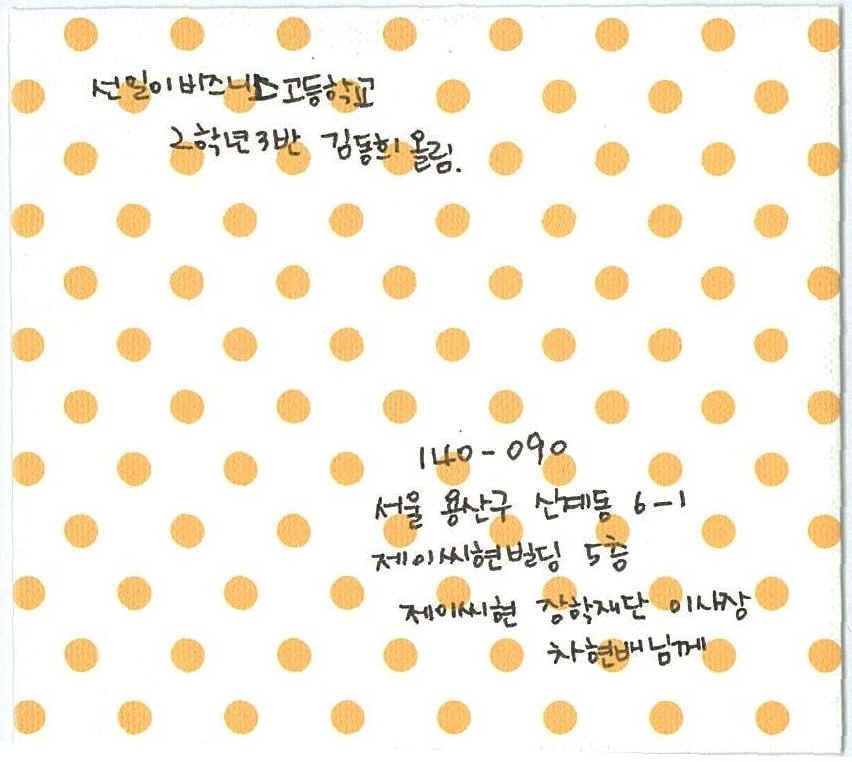 선일이비즈니스고등학교
2학년 3반 김동희 올림.
140-090
서울 용산구 신계동 6-1
제이씨현빌딩 5층
제이씨현 장학재단 이사장
차현배님께